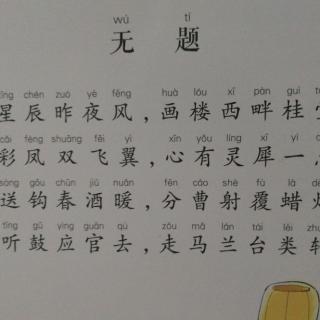 wú tí
无题
xīng chén zuó yè fēng huà lóu xī pàn guì
星辰昨夜风,画楼西畔桂
cǎi fèng shuāng fēi yì xīn yǒu líng xī yì
彩凤双飞翼,心有灵犀一
sòng gōu chūn jiǔ nuǎn fēn cáo shè fù là
送钩春酒暖,分曹射覆蜡
tīng gǔ yìng guān qù zǒu mǎ lán tái lèi
听鼓应官去,走马兰台类